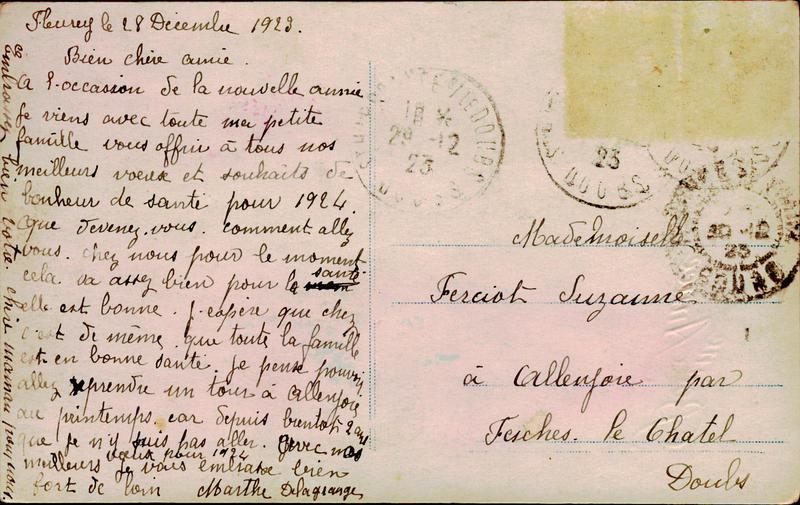 Fleurey le 28 Décembre 1923.
Bien chère amie.
A l'occasion de la nouvelle année
je viens avec toute ma petite
famille vous offrir à tous nos
meilleurs voeux et souhaits de
bonheur de santé pour 1924.
Que devenez-vous. comment allez
vous. chez nous pour le moment
cela va assez bien pour la santé
elle est bonne. j'espère que chez
c'est de même. que toute la famille
est en bonne santé. je pense pouvoir
allez reprendre un tour à Allenjoie
au printemps. car depuis bientôt 2 ans
que je n'y suis pas aller. Avec mes
meilleurs voeux pour 1924
je vous embrasse bien
fort de loin Marthe Delagrange
embrasser bien votre chère maman pour nous.
18 *
29-12
23
DOUBS
23
DOUBS
30-12
23
DOUBS
Mademoiselle
Ferciot Suzanne
à Allenjoie par
Fesches. le Chatel
Doubs